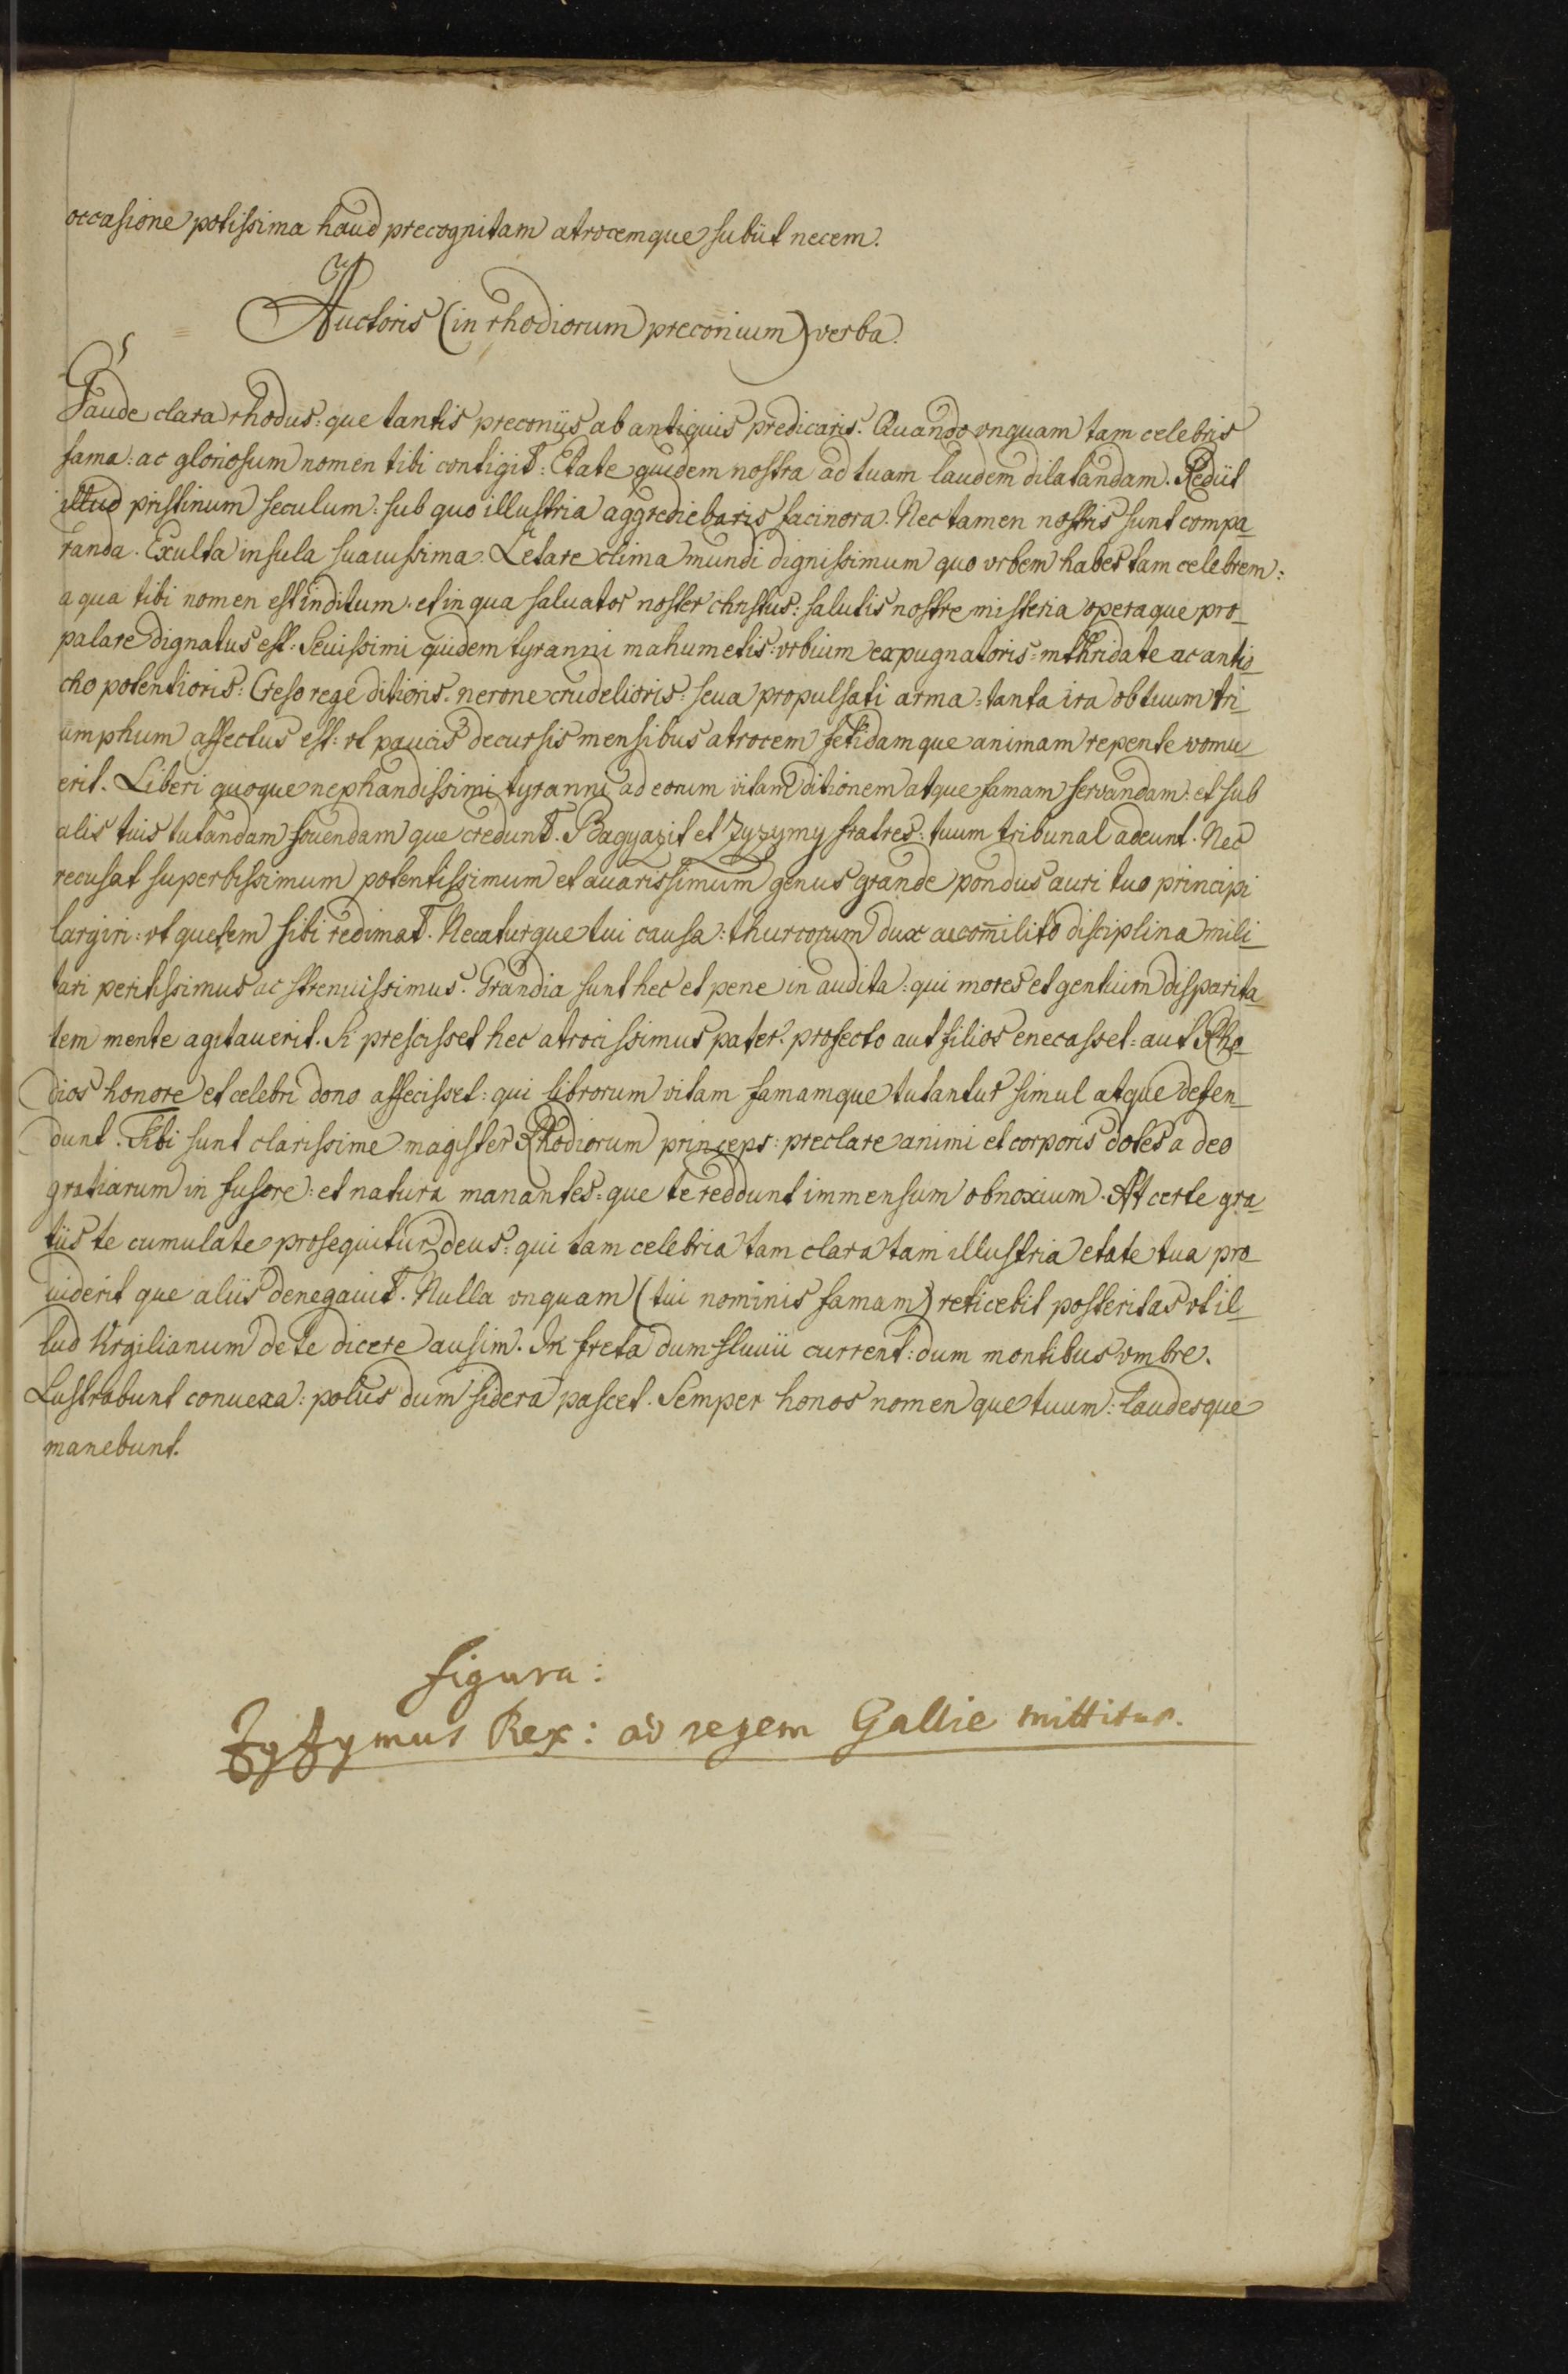 occasione potissima haud precognitam atrocemque subiit necem.
Auctoris (in rhodiorum preconium) verba.
Gaude clara rhodus: que tantis preconijs ab antiquis predicaris. Quando vnquam tam celebris
fama: ac gloriosum nomen tibi contigit: Etate quidem nostra ad tuam laudem dilatandam. Rediit
illud pristinum seculum: sub quo illustria aggrediebaris facinora. Nec tamen nostris sunt compa_
randa. Exulta insula suauissima. Letare clima mundi dignissimum quo vrbem habes tam celebrem:
a qua tibi nomen est inditum: et in qua saluator noster christus: salutis nostre misteria operaque pro_
palare dignatus est. Seuissimi quidem tyranni mahumetis: vrbium expugnatoris: mthridate ac antio_
cho potentioris: Creso rege ditioris. nerone crudelioris: seua propulsati arma: tanta ira ob tuum tri_
umphum affectus est: vt paucis decursis mensibus atrocem fetidamque animam repente vomu_
erit. Liberi quoque nephandissimi tyranni ad eorum vitam ditionem atque famam servandam: et sub
alis tuis tutandam fouendam que credunt. Bagyazit et Zyzymy fratres: tuum tribunal adeunt. Nec
recusat superbissimum potentissimum et auarissimum genus grande pondus auri tuo principi
largiri: vt quetem sibi redimat. Necaturque tui causa: thurcorum dux ac com̄ilito disciplina mili_
tari peritissimus ac strenuissimus. Grandia sunt hec et pene in audita: qui mores et gentium disparita_
tem mente agitauerit. Si prescisset hec atrocissimus pater. profecto aut filios enecasset: aut Rho_
dios honore et celebri dono affecisset: qui librorum vitam famamque tutantur simul atque defen_
dunt. Tibi sunt clarissime magister Rhodiorum princeps: preclare animi et corporis dotes a deo
gratiarum in fusore: et natura manantes: que te reddunt immensum obnoxium. At certe gra_
tiis te cumulate prosequitur deus: qui tam celebria tam clara tam illustria etate tua pro_
uiderit que aliis denegauit. Nulla vnquam (tui nominis famam) reticebit posteritas vt il_
lud Virgilianum de te dicere ausim. In freta dum fluuii current: dum montibus vmbre.
Lustrabunt conuexa: polus dum sidera pascet. Semper honos nomen que tuum: laudesque
manebunt.
figura:
Zyzymus Rex: ad regem Gallie mittitur.